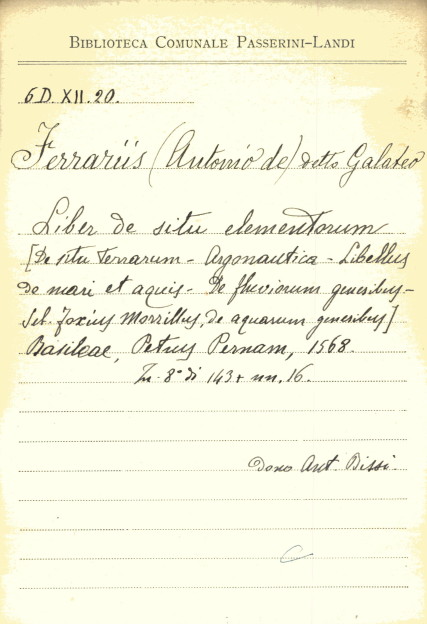 BIBLIOTECA COMUNALE PASSERINI-LANDI
6D. XII. 20.
Ferrariis (Antonio de) detto Galateo
Liber de situ elementorum
[De situ terrarum - Argonautica - Libellus
de mari et aquis - De fluviorum generibus -
Seb. Foxius Morzillus, de aquarum generibus]
Basileae, Petrus Pernam, 1568.
In-8° di 143 + nn. 16.
Dono Ant. Bissi.